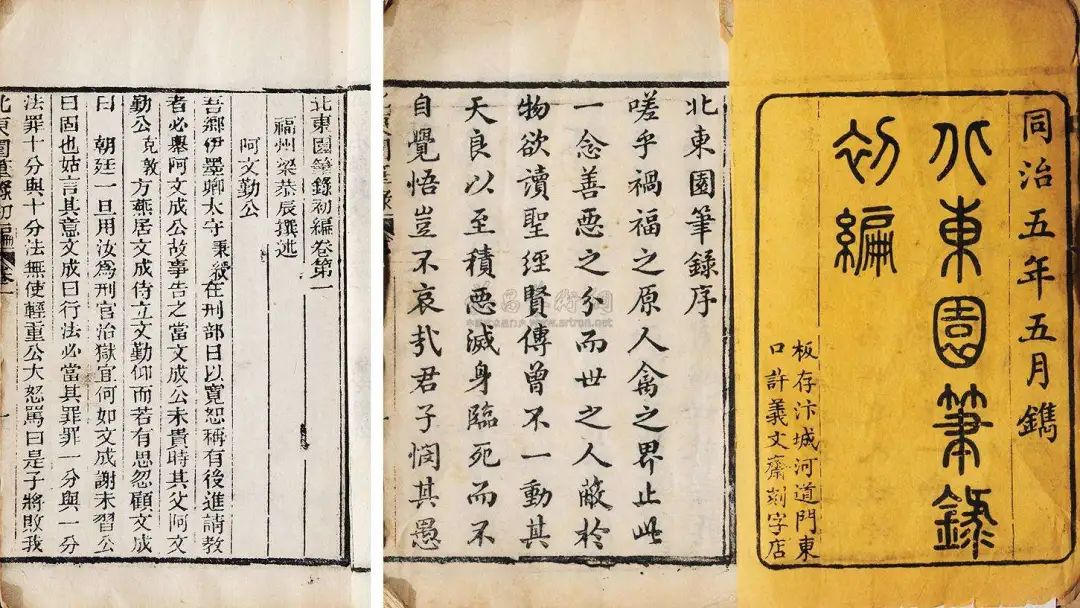 同治五年五月鐫
北東園筆錄
初編
板存汴城河道門東
口許義文齋刻字店
北東園筆錄序
嗟乎禍福之原人禽之界止此
一念善惡之分而世之人蔽於
物欲讀聖經賢傳曾不一動其
天良以至積惡滅身臨死而不
自覺悟豈不哀哉君子憫其愚
北東園筆錄初編卷第一
福州梁恭辰撰述
阿文勤公
吾鄉伊墨卿太守秉綬在刑部日以寬恕稱有後進請教
者必舉阿文成公故事告之當文成公未貴時其父阿文
勤公克敦方燕居文成侍立文勤仰而若有思忽顧文成
曰 朝廷一旦用汝爲刑官治獄宜何如文成謝未習公
曰固也姑言其意文成曰行法必當其罪罪一分與一分
法罪十分與十分法無使輕重公大怒罵曰是子將敗我
北東園筆錄初編 卷一 一